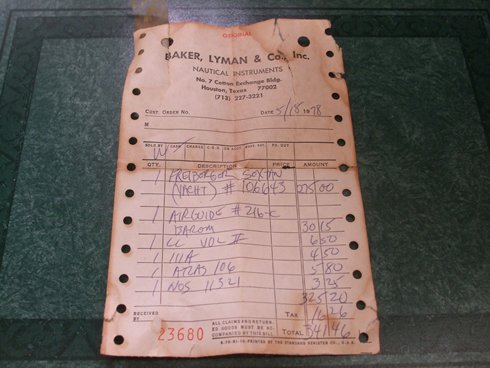 ORIGINAL
BAKER, LYMAN & Co., Inc.
NAUTICAL INSTRUMENTS
No. 7 Cotton Exchange Bldg.
Houston, Texas 77002
(713) 227-3221
CUST. ORDER NO. DATE 5/18 1978
M
SOLD BY CASH CHARGE C.O.D. ON ACCT. MDSE. RETD. PD. OUT
QTY. DESCRIPTION PRICE AMOUNT
1 FREIBERGER SEXTAN
(YACHT) # 106643 275 00
1 AIRGUIDE # 216-C
BAROM 30 15
1 LL VOL II 6 50
1 111A 4 50
1 ATLAS 106 5 80
1 NOS 11321 3 25
325 20
RECEIVED BY
23680
ALL CLAIMS AND RETURN-
ED GOODS MUST BE AC-
COMPANIED BY THIS BILL
TAX 16 26
TOTAL 341 46
PRINTED BY THE STANDARD REGISTER CO., U.S.A.